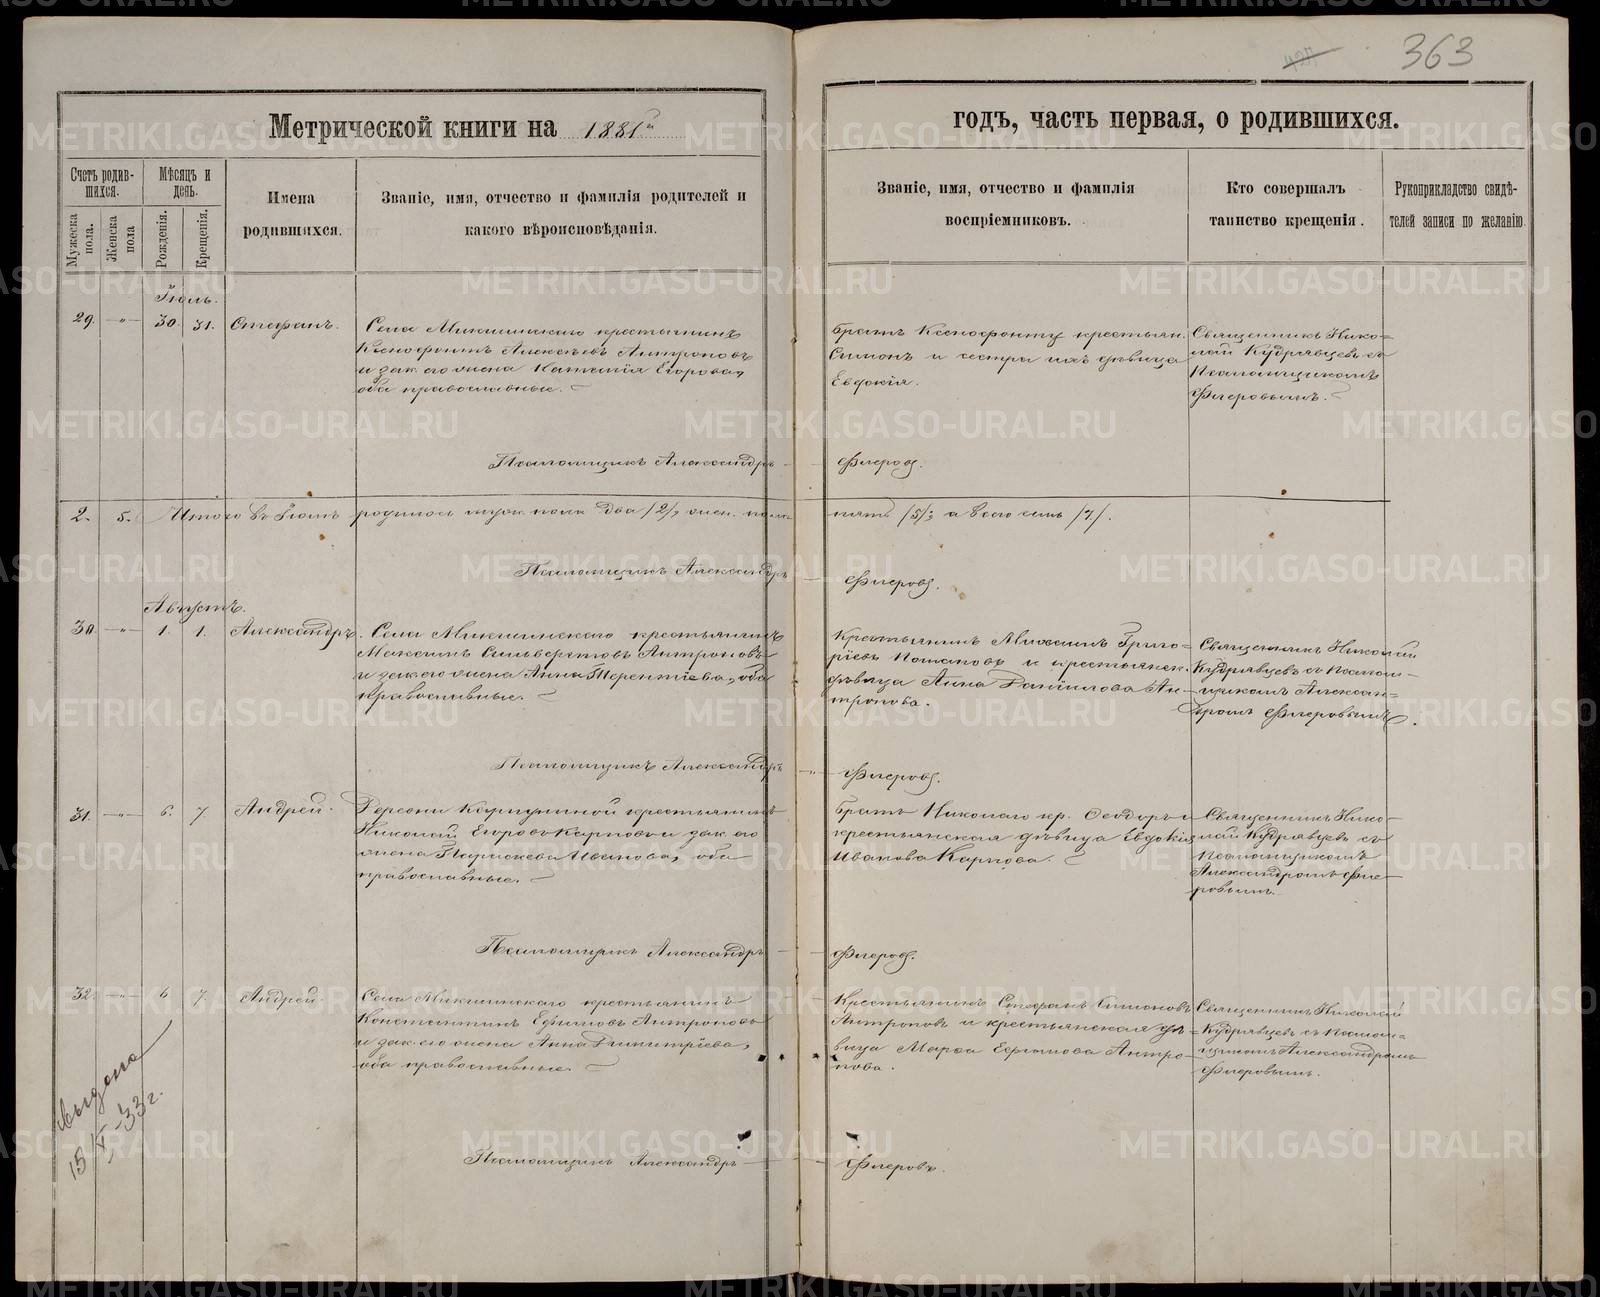 363
Метрической книги на 1881й
годъ, часть первая, о родившихся.
Счетъ родив-
шихся.
Мужеска
пола.
Женска
пола
Мѣсяцъ и
день.
Рожденія.
Крещенія.
Имена
родившихся.
Званіе, имя, отчество и фамилія родителей и
какого вѣроисповѣданія.
Званіе, имя, отчество и фамилія
воспріемниковъ.
Кто совершалъ
таинство крещенія.
Рукоприкладство свидѣ-
телей записи по желанію.
Іюль.
29. -"- 30. 31. Стефанъ.
Села Микшинскаго крестьянинъ
Ксенофонтъ Алексѣевъ Антроповъ
и зак. его жена Егорова,
оба православные.
Братъ Ксенофонту крестьян.
Симонъ и сестра ихъ дѣвица
Евдокія.
Священникъ Нико-
лай Кудрявцевъ съ
Псаломщикомъ
Флеровымъ.
Псаломщикъ Александръ Флеровъ.
2. 5. Итого въ Іюлѣ родилось муж. пола два /2/, жен. пола пять /5/; а всего семь /7/.
Псаломщикъ Александръ Флеровъ.
Августъ.
30. -"- 1. 1. Александръ.
Села Микшинскаго крестьянинъ
Максимъ Сильверстовъ Антроповъ
и зак. его жена Анна Терентіева, оба
православные.
Крестьянинъ Григо-
ріевъ и крестьянск.
дѣвица Анна Даніилова Ан-
тропова.
Священникъ Николай
Кудрявцевъ съ Псалом-
щикомъ Александ-
ромъ Флеровымъ.
Псаломщикъ Александръ -"- Флеровъ.
31. -"- 6. 7. Андрей.
крестьянинъ
Николай Егоровъ Карповъ и зак. его
жена Параскева Иванова, оба
православные.
Братъ Николаю кр. Ѳеодоръ и
крестьянская дѣвица Евдокія
Иванова Карпова.
Священникъ Нико-
лай Кудрявцевъ съ
Псаломщикомъ
Александромъ Фле-
ровымъ.
Псаломщикъ Александръ Флеровъ.
32. -"- 6. 7. Андрей.
Села Микшинскаго крестьянинъ
Константинъ Ефимовъ Антроповъ
и зак. его жена Анна Димитріева,
оба православные.
Крестьянинъ Стефанъ Симоновъ
Антроповъ и крестьянская дѣ-
вица Марѳа Ефимова Антро-
пова.
Священникъ Николай
Кудрявцевъ съ Псалом-
щикомъ Александромъ
Флеровымъ.
Выдана
15/X-33 г.
Псаломщикъ Александръ Флеровъ.
METRIKI.GASO-URAL.RU